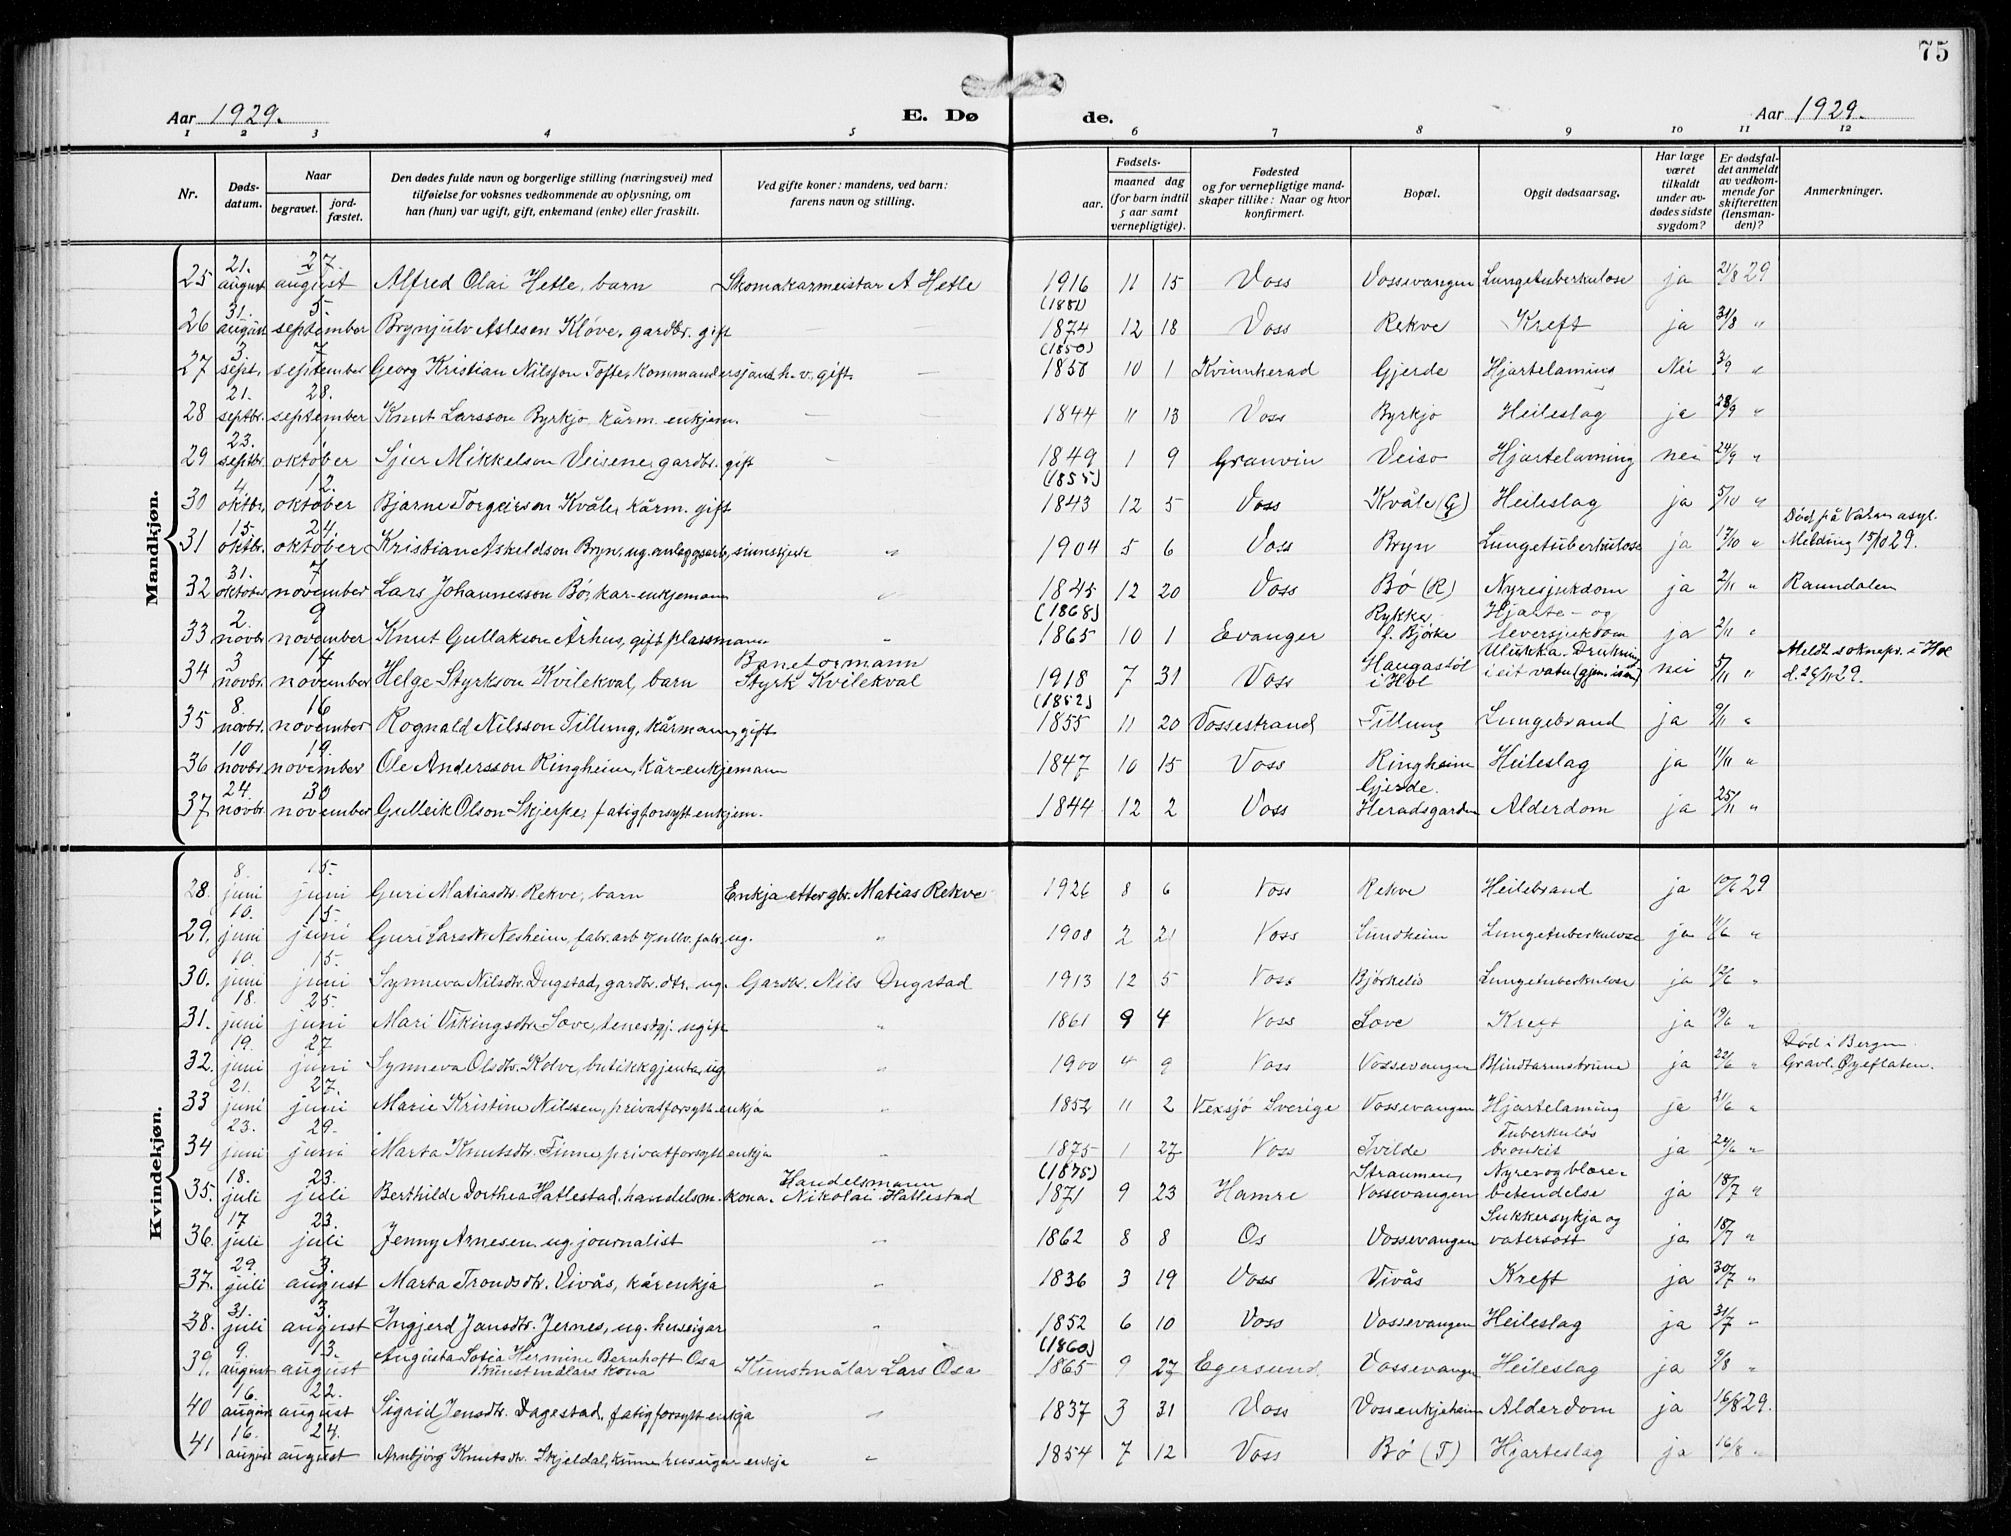 75
Aar 1929. E. Dø de. Aar 1929.
1 2 3 4 5 6 7 8 9 10 11 12
Nr.
Døds-
datum.
Naar
begravet.
jord-
fæstet.
Den dødes fulde navn og borgerlige stilling (næringsvei) med
tilføielse for voksnes vedkommende av oplysning, om
han (hun) var ugift, gift, enkemand (enke) eller fraskilt.
Ved gifte koner: mandens, ved barn:
farens navn og stilling.
Fødsels-
aar.
maaned dag
(for barn indtil
5 aar samt
vernepligtige).
Fødested
og for vernepligtige mand-
skaper tillike: Naar og hvor
konfirmert.
Bopæl.
Opgit dødsaarsag.
Har læge
været
tilkaldt
under av-
dødes sidste
sygdom?
Er dødsfal-
det anmeldt
av vedkom-
mende for
skifteretten
(lensman-
den)?
Anmerkninger.
Mandkjøn.
25 21. august 27. august Alfred Olai Hetle, barn Skomakarmeistar A Hetle 1916 11 15 Voss Vossevangen Lungetuberkulose ja 21/8 29
26 31. august 5. september Brynjulv Aslesen Kløve, gardbr. gift — — (1881) 1874 12 18 Voss Rekve Kreft ja 31/8 "
27 3. sept. 7 september Georg Kristian Nilsson Tofte, kommandersjant h.v., gift — (1850) 1858 10 1 Kvinnherad Gjerde Hjartelaming Nei 3/9 "
28 21. septbr. 28. september Knut Larsson Byrkjo, kårm. enkjem. — — 1844 11 13 Voss Byrkjo Heileslag ja 28/9 "
29 23. septbr. 1. oktober Sjur Mikkelson Veisene, gardbr. gift — 1849 1 9 Granvin Veiso Hjartelamning nei 24/9 "
30 4. oktbr. 12. oktober Bjarne Torgeirson Kvåle, kårm. gift (1855) 1843 12 5 Voss Kvåle (G) Heileslag ja 5/10 "
31 15. oktbr. 24. oktober Kristian Askeldson Bryn, ug. anleggsarb, sinnssjuk " 1904 5 6 Voss Bryn Lungetuberkulose ja 17/10 " Død på Valen asyl. Melding 15/10 29.
32 31. oktober 7 november Lars Johannesson Bø, kår-enkjemann " 1845 12 20 Voss Bø (R) Nyresjukdom ja 2/11 " Raundalen
33 2. novbr. 9 november Knut Gullakson Århus, gift plassmann " (1868) 1865 10 1 Evanger Rykke, f. Bjørke Hjarte- og leversjukdom ja 2/11 "
34 3 novbr. 14 november Helge Styrkson Kvilekval, barn Banetormann Styrk Kvilekval 1918 7 31 Voss Haugastøl i Hol Ulukka. Drukning i eit vatn (gjen. isen) nei 5/11 " Meldt soknepr. i Hol d. 26/11 29.
35 8. novbr. 16 november Rognald Nilsson Tillung, kårmann, gift (1852) 1855 11 20 Vossestrand Tillung Lungebrand ja 9/11 "
36 10 novbr. 19. november Ole Andersson Ringheim, kår-enkjemann 1847 10 15 Voss Ringheim Heileslag ja 11/11 "
37 24. novbr. 30 november Gulleik Olson Skjerpe, fatigforsytt enkjem. 1844 12 2 Voss Gjerde. Heradsgarden Alderdom ja 25/11 "
Kvindekjøn.
28. 8. juni 15. juni Guri Matiasdtr. Rekve, barn Enkja etter gbr. Matias Rekve 1926 8 6 Voss Rekve Heilebrand ja 10/6 29
29. 10. juni 15. juni Guri Larsdtr. Nesheim, fabr. arb. ullv. fabr., ug. " 1908 2 21 Voss Lundheim Lungetuberkulose ja 11/6 "
30. 10. juni 15. juni Synneva Nilsdtr. Dugstad, gardbr. dtr. ug. Gardbr. Nils Dugstad 1913 12 5 Voss Bjørkeli Lungetuberkulose ja 12/6 "
31. 18. juni 25. juni Mari Vikingsdtr. Love, tenestgj. ugift " 1861 9 4 Voss Love Kreft ja 19/6 "
32. 19. juni 27. juni Synneva Olsdtr. Kolve, butikkgjenta, ug. " 1900 4 9 Voss Vossevangen Blindtarmsbrune ja 22/6 " Død i Bergen. Gravl. Øyeflaten.
33 21. juni 27. juni Marie Kristine Nilssen, privatforsytt enkja " 1852 11 2 Vexsjö Sverige Vossevangen Hjartelaming ja 21/6 "
34 23. juni 29. juni Marta Knutsdtr. Finne, privatforsytt enkja " 1875 1 27 Voss Tvilde Tuberkuløs bronkit ja 24/6 "
35. 18. juli 23. juli Berthilde Dorthea Hatlestad, handelsm. kona. Handelsmann Nikolai Hatlestad (1875) 1871 9 23 Hamre Straumen, Vossevangen Nyre og blære- betendelse ja 18/7 "
36. 17 juli 23. juli Jenny Arnesen, ug. journalist " 1862 8 8 Os Vossevangen Sukkersykja og vatersott ja 18/7 "
37. 29 juli 3. august Marta Trondsdtr. Vivås, kårenkja " 1836 3 19 Voss Vivås Kreft ja 30/7 "
38. 31. juli 3. august Ingjerd Jonsdtr. Jernes, ug. huseigar " 1852 6 10 Voss Vossevangen Heileslag ja 31/7 "
39. 9. august 13. august Augusta Sofia Hermine Bernhoft Osa kunstmålars kona Kunstmålar Lars Osa (1860) 1865 9 27 Egersund. Vossevangen Heileslag ja 9/8 "
40 16. august 22. august Sigrid Jensdtr. Dagestad, fatigforsytt enkja " 1837 3 31 Voss Voss enkjeheim Alderdom ja 16/8 29.
41 16. august 24. august Arnbjørg Knutsdtr. Skjeldal, huseigar enkja " 1854 7 12 Voss Bø (T) Hjarteslag ja 16/8 "